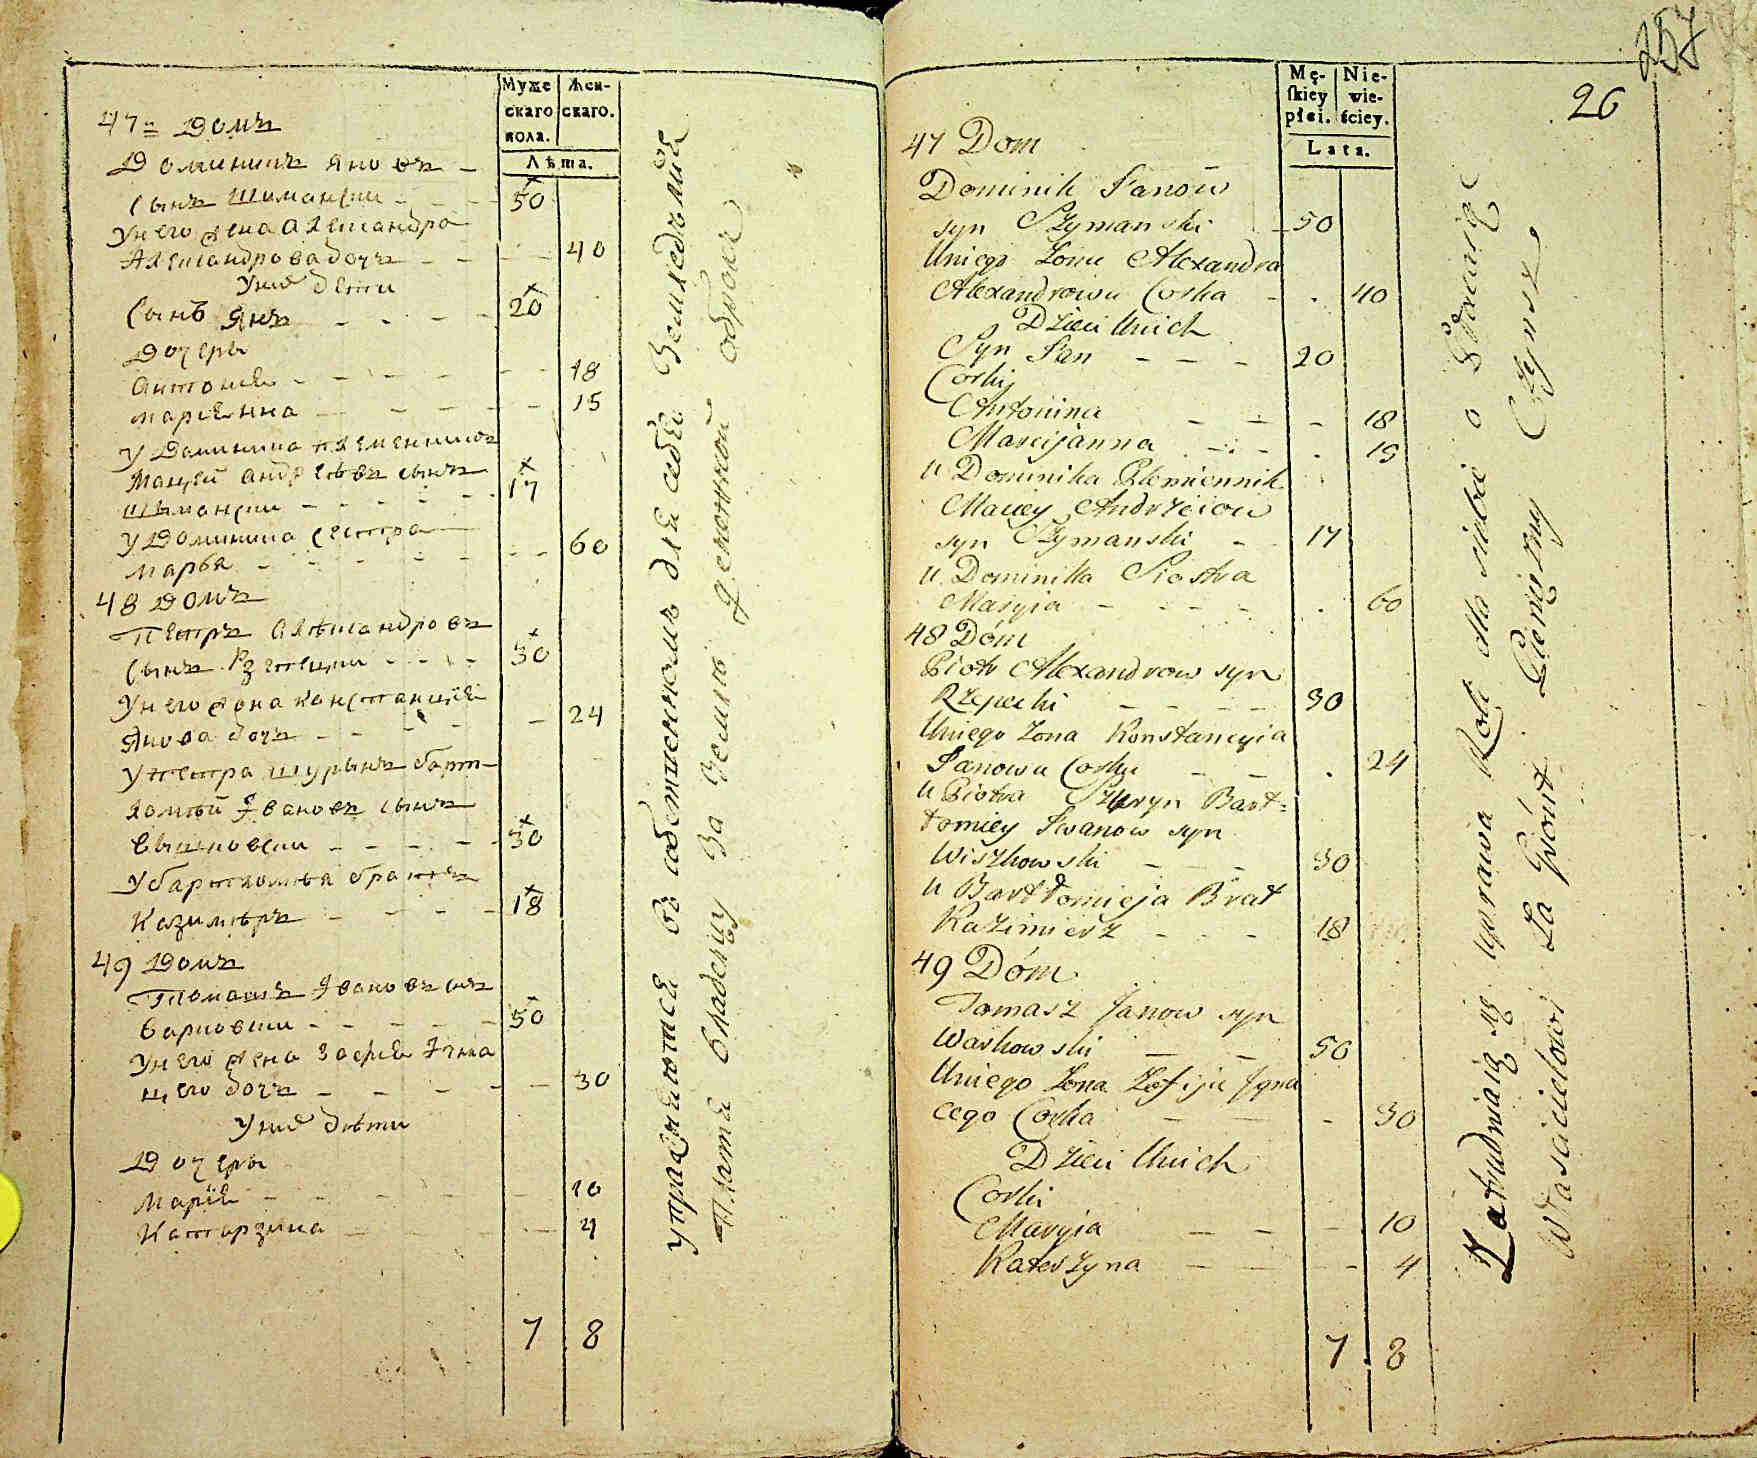 Муже
скаго
пола.
Жен-
скаго.
Лѣта.
47й Домъ
Доминикъ Яновъ –
сынъ Шимански – – – 50
У него жена Александра
Александрова дочь – – – – 40
У них дети
Сынъ Янъ – – – – 20
Дочеры
Антонія – – – – – – 18
Маріанна – – – – – 15
У Доминика племенникъ
Мацей Андреевъ сынъ
Шимански – – – – – 17
У Доминика сестра
Марья – – – – – – 60
48 Домъ
Петръ Александровъ
сынъ Рзепецки – – – – 30
У него жона Констанція
Янова дочь – – – – – 24
У Петра шурынъ Барт-
ломей Ивановъ сынъ
Вышковски – – – – – 30
У Бартломея братъ
Казимеръ – – – – – 18
49 Домъ
Томашъ Ивановъ сынъ
Варковски – – – – – 50
У него жена Зофія Игна
цего дочь – – – – – 30
У них дѣти
Дочеры
Марія – – – – – – 10
Катарзина – – – – – 4
7 8
упражняются въ собственномъ для себя земледѣлий
Платя владельцу за землю денежной оброкъ
257
26
Mę-
skiey
płci.
Nie-
wie-
ściey.
Lata.
47 Dom
Dominik Janow
syn Szymanski – 50
Uniego Zona Alexandra
Alexandrowa Corka – . 40
Dzieci Unich
Syn Jan – – – – 20
Corki
Antonina – – – – 18
Marcijanna – – – . 15
U Dominika Plemiennik
Maciey Andrzeiow
syn Szymanski – – 17
U Dominika Siostra
Maryia – – – – . 60
48 Dóm
Piotr Alexandrow syn
Rzepecki – – – – 30
Uniego Zona Konstancyia
Janowa Corka – – . 24
U Piotra Szuryn Bart=
łomiey Iwanow syn
Wiszkowski – – – 30
U Bartłomieja Brat
Kazimierz – – – 18
49 Dóm
Tomasz Janow syn
Warkowski – – 50
Uniego Zona Zofija Igna
cego Corka – – – 30
Dzieci Unich
Corki
Maryia – – – 10
Katerzyna – – – 4
7 8
Zatrudniaią się uprawą Roli dla siebie o
Właścicielowi Za Grónt Pieniężny Czynsz